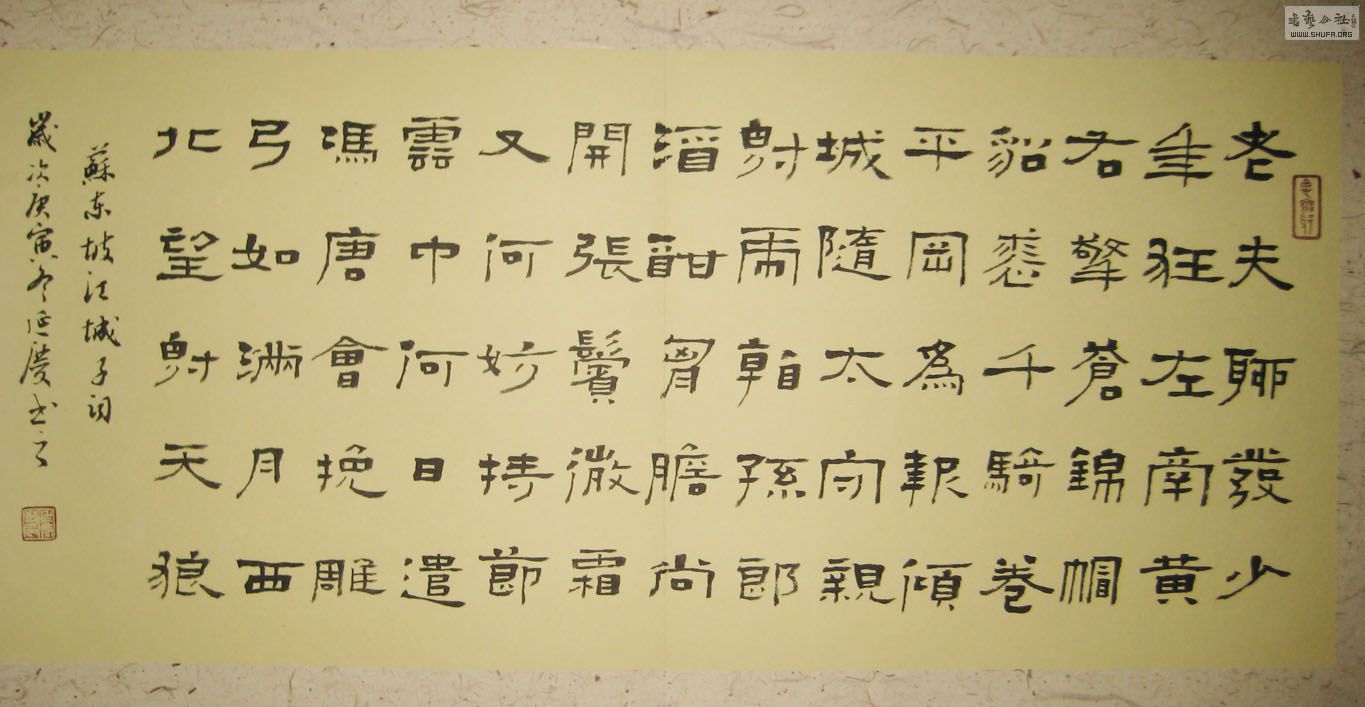 老夫聊發少
年狂左牽黃
右擎蒼錦帽
貂裘千騎卷
平岡為報傾
城隨太守親
射虎看孫郎
酒酣胸膽尚
開張鬢微霜
又何妨持節
雲中何日遣
馮唐會挽雕
弓如滿月西
北望射天狼
蘇東坡江城子詞
歲次庚寅冬延慶書之
WWW.SHUFA.ORG